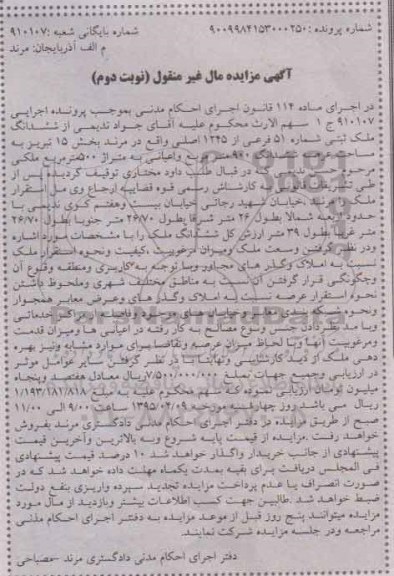 شماره پرونده :۹۰۰۹۹۸۴۱۵۳۰۰۰۲۵۰ شماره بایگانی شعبه :۹۱۰۱۰۷
م الف آذربایجان: مرند
آگهی مزایده مال غیر منقول (نوبت دوم)
در اجرای ماده ۱۱۴ قانون اجرای احکام مدنی بموجب پرونده اجرایی
۹۱۰۱۰۷ ج ۱ سهم الارث محکوم علیه آقای جواد ندیمی از ششدانگ
ملک ثبتی شماره ۵۱ فرعی از ۱۲۴۵ اصلی واقع در مرند بخش ۱۵ تبریز به
مساحت عرصه ۹۰۰متر مربع واعیانی به متراژ ۵۰۰مترمربع ملکی
مرحوم ندیمی که در قبال طلب داود مختاری توقیف گردیده پس از
طی تشریفات قانونی به کارشناس رسمی قوه قضاییه ارجاع وی مل استقرار
ملک در مرند ،خیابان شهید رجائی خیابان بیست وهفتم کوی ندیمی با
حدود اربعه شمالا بطول ۲۶ متر شرقا بطول ۲۶/۷۰ متر جنوبا بطول ۲۶/۷۰
متر غربا بطول ۳۹ متر ارزش کل ششدانگ ملک را با مشخصات مورد اشاره
ودر نظر گرفتن وسعت ملک ومیزان مرغوبیت ،کیفیت ونحوه استقرار ملک
نسبت به املاک وگذر های مجاور وبا توجه به کاربری ومنطقه وقوع آن
وچگونگی قرار گرفتن آن نسبت به مناطق مختلف شهری وملحوظ داشتن
نحوه استقرار عرصه نسبت به املاک وگذر های وعرض معابر همجوار
ونحوه شبکه بندی معابر وخیابان های موجود وفاصله با مراکز خدماتی
وبا مد نظر دادن جنس ونوع مصالح به کار رفته در اعیانی ها ومیزان قدمت
ومرغوبیت آنها وبا لحاظ میزان عرضه وتقاضا برای موارد مشابه ونیز بهره
دهی ملک از دید کارشناسی ونهایتا با در نظر گرفتن سایر عوامل موثر
در ارزیابی وجمیع جهات بمبلغ ۷/۵۰۰/۰۰۰/۰۰۰ریال معادل هفتصد وپنجاه
میلیون تومان ارزیابی نموده که سهم محکوم علیه به مبلغ ۱/۱۹۳/۱۸۱/۸۱۸
ریال می باشد روز چهارشنبه مورخه ۱۳۹۵/۰۷/۰۷ ساعت ۹/۰۰ الی ۱۱/۰۰
صبح از طریق مزایده در دفتر اجرای احکام مدنی دادگستری مرند بفروش
خواهد رفت .مزایده از قیمت پایه شروع وبه بالاترین وآخرین قیمت
پیشنهادی از جانب خریدار واگذار خواهد شد ۱۰ درصد قیمت پیشنهادی
فی المجلس دریافت برای بقیه بمدت یکماه مهلت داده خواهد شد که در
صورت انصراف یا عدم پرداخت مزایده تجدید سپرده واریزی بنفع دولت
ضبط خواهد شد .طالبین جهت کسب اطلاعات بیشتر وبازدید از مال مورد
مزایده میتوانند پنج روز قبل از موعد مزایده به دفتر اجرای احکام مدنی
مراجعه ودر جلسه مزایده شرکت نمایند.
دفتر اجرای احکام مدنی دادگستری مرند –مصباحی